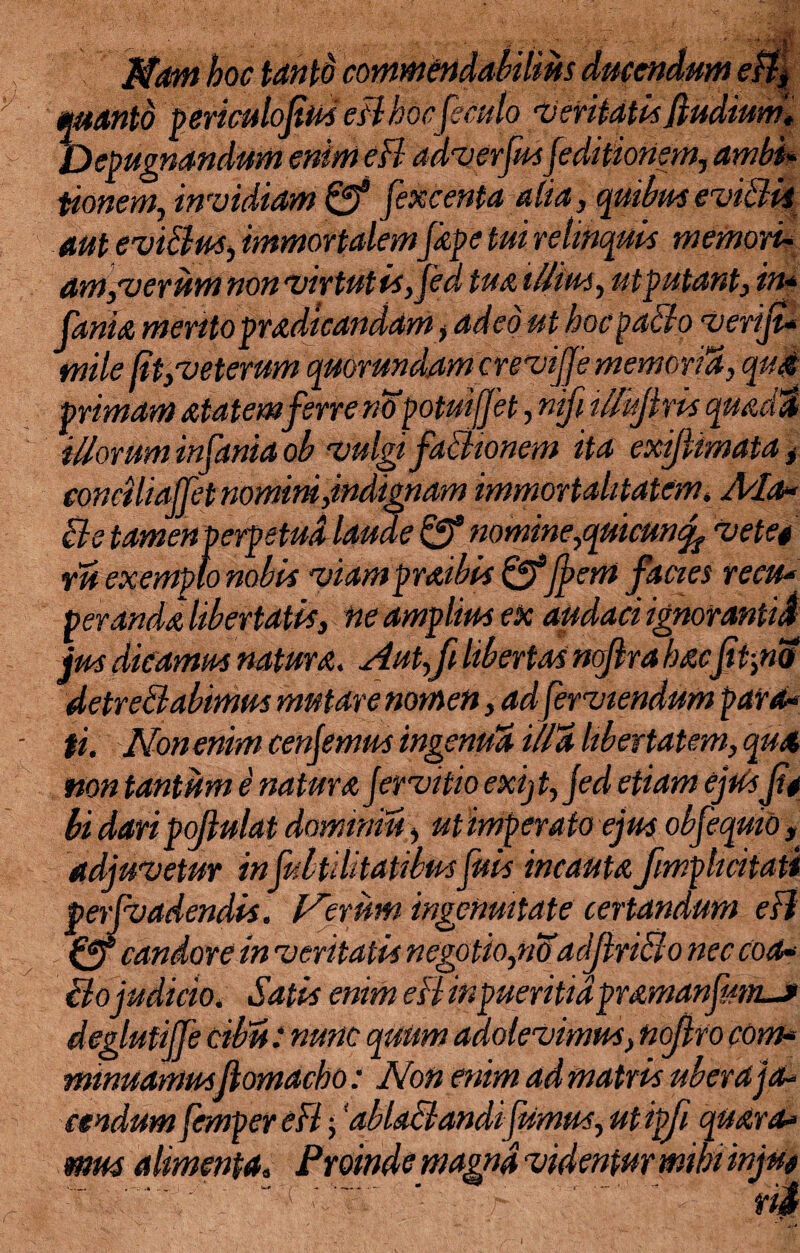 Nam hoc tantò commendabilius ducendum eſt,
quantò periculoſius eſt hoc ſeculo veritatis ſtudium.
Depugnandum enim eſt adverſus ſeditionem, ambi-
tionem, invidiam & ſexcenta alia, quibus evictis
aut evictus, immortalem ſæpe tui relinquis memori-
am, verùm non virtutis, ſed tuæ illius, ut putant, in-
ſaniæ meritò prædicandam, adeò ut hoc pacto veriſi-
mile ſit, veterum quorundam creviſſe memoriã, quæ
primam ætatem ferre nõ potuiſſet, niſi illuſtris quædã
illorum inſania ob vulgi factionem ita exiſtimata,
conciliaſſet nomini, indignam immortalitatem. Ma-
cte tamen perpetuâ laude & nomine, quicunq; vete-
rũ exemplo nobis viam præibis & ſpem facies recu-
perandæ libertatis, ne amplius ex audaci ignorantiâ
jus dicamus naturæ. Aut, ſi libertas noſtra hæc ſit; nõ
detrectabimus mutare nomen, ad ſerviendum para-
ti. Non enim cenſemus ingenuã illã libertatem, quæ
non tantùm è naturæ ſervitio exijt, ſed etiam ejus ſi-
bi dari poſtulat dominiũ, ut imperato ejus obſequio,
adjuvetur in ſubtilitatibus ſuis incautæ ſimplicitati
perſvadendis. Verùm ingenuitate certandum eſt
& candore in veritatis negotio, nõ adſtricto nec coa-
cto judicio. Satis enim eſt in pueritiâ præmanſum
deglutiſſe cibũ: nunc quum adolevimus, noſtro com-
minuamus ſtomacho: Non enim ad matris ubera ja-
cendum ſemper eſt; ablactandi ſumus, ut ipſi quæra-
mus alimenta. Proinde magnâ videntur mihi inju-
riâ